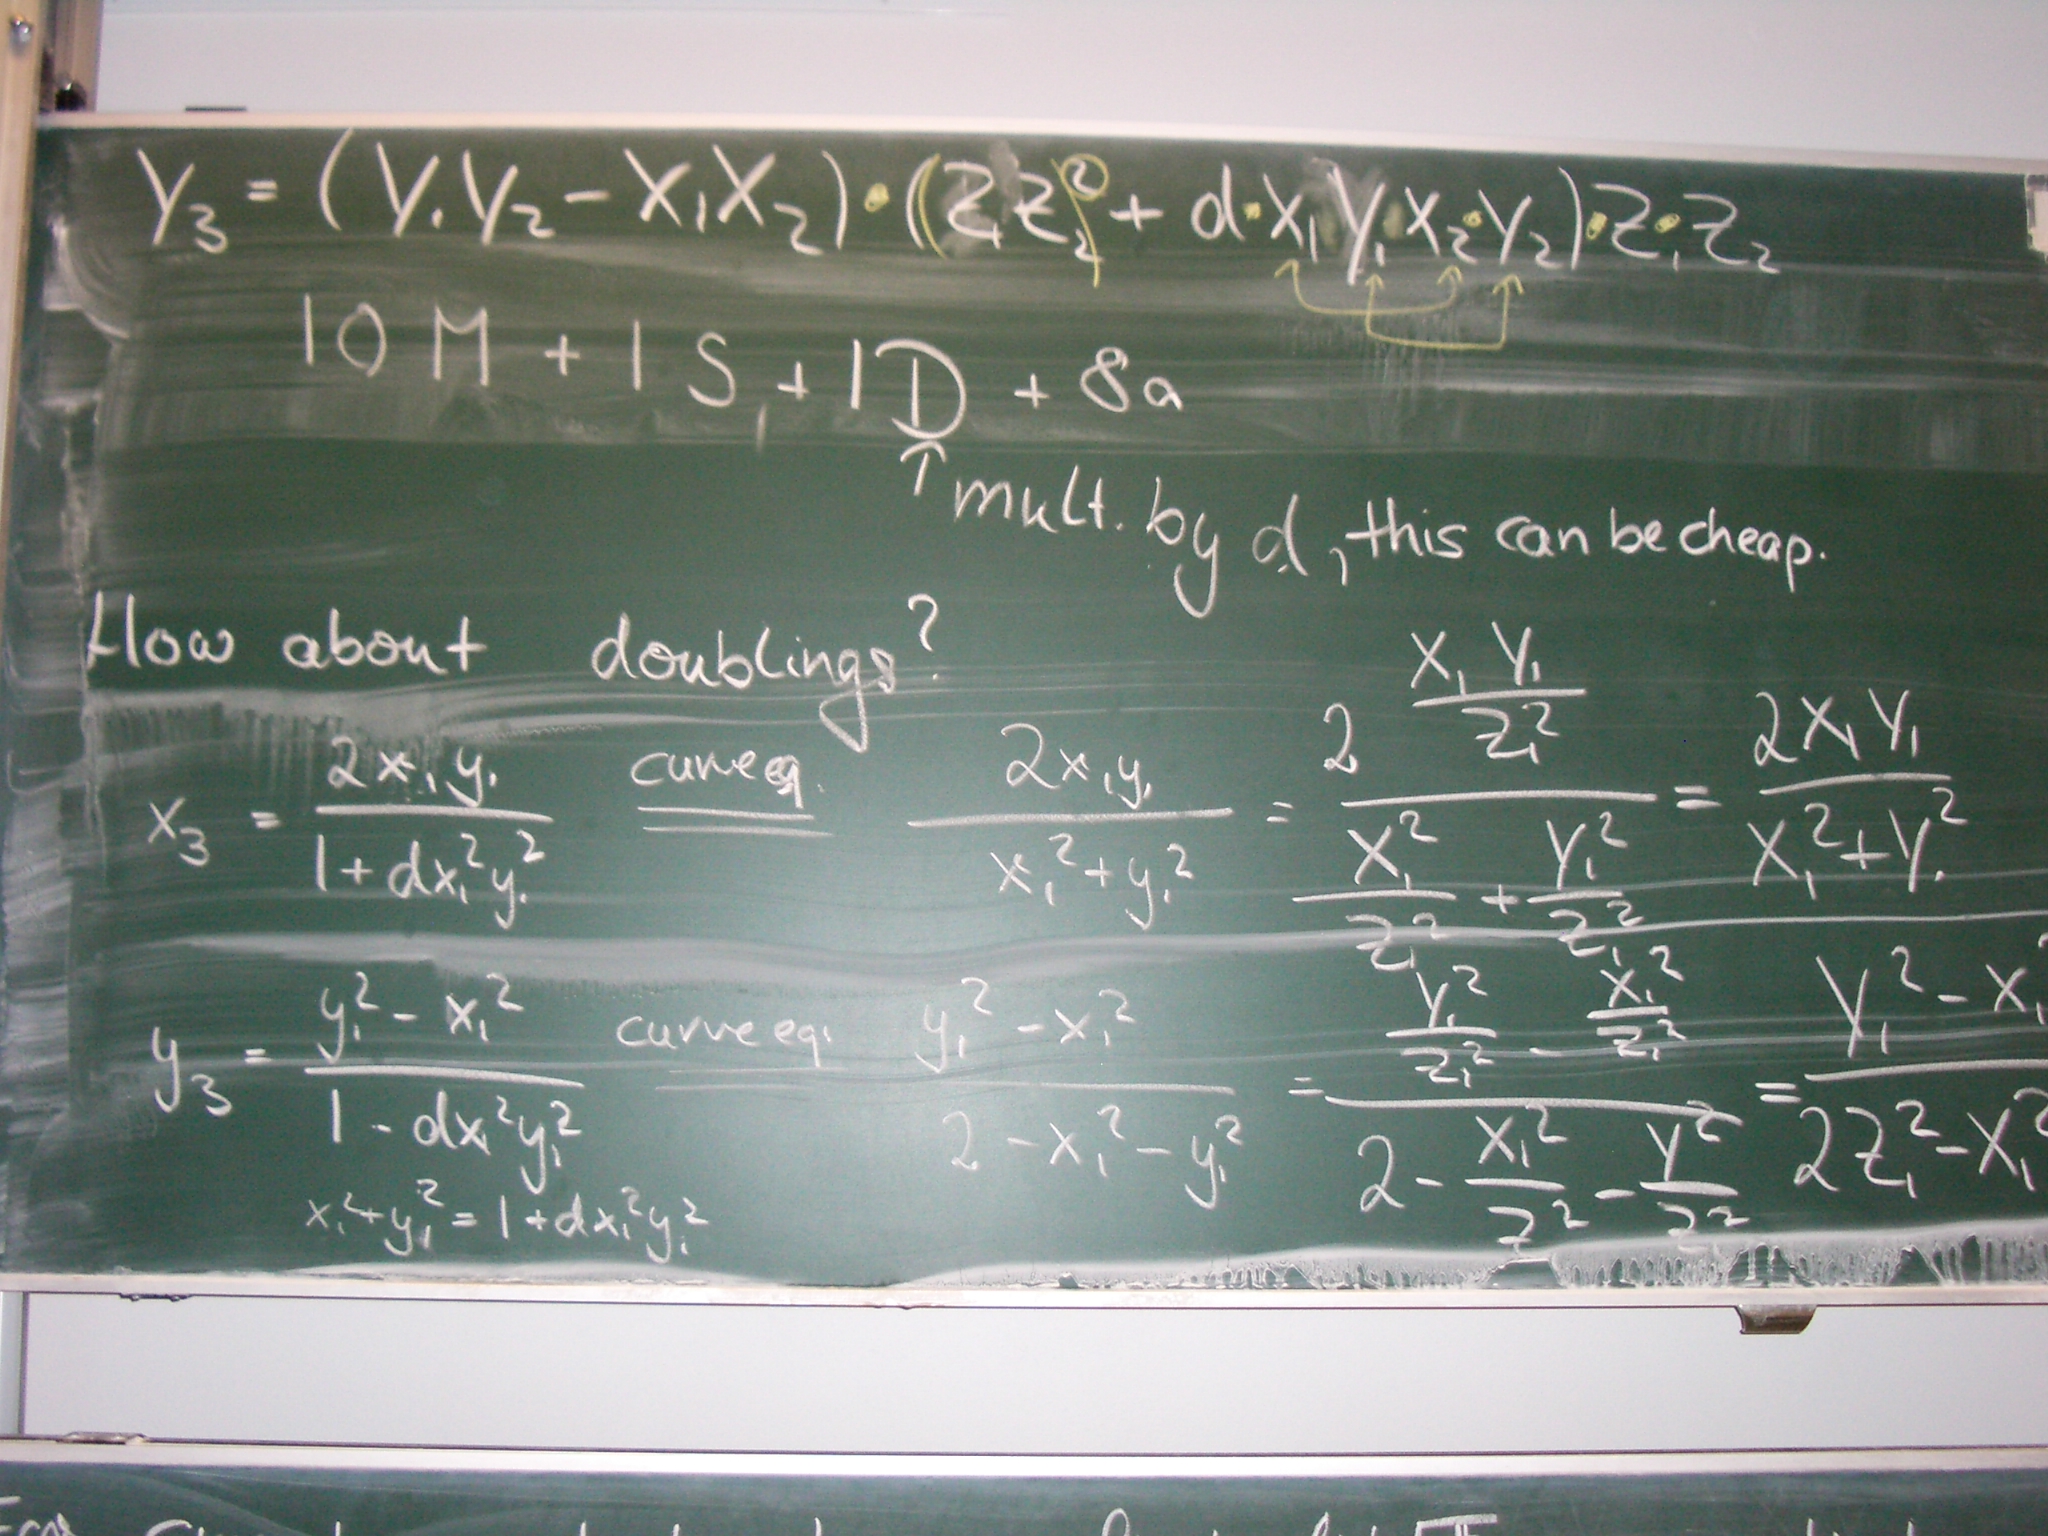 Y₃ = (Y₁Y₂ - X₁X₂) · ((Z₁Z₂)² + d·X₁Y₁·X₂·Y₂)·Z₁·Z₂
10M + 1S + 1D + 8a
↑ mult. by d, this can be cheap.
How about doublings?
x₃ = 2x₁y₁ / (1+dx₁²y₁²) curve eq. = 2x₁y₁ / (x₁²+y₁²) = 2 (X₁Y₁/Z₁²) / (X₁²/Z₁² + Y₁²/Z₁²) = 2X₁Y₁ / (X₁²+Y₁²)
y₃ = (y₁² - x₁²) / (1 - dx₁²y₁²) curve eq. = (y₁² - x₁²) / (2 - x₁² - y₁²) = (Y₁²/Z₁² - X₁²/Z₁²) / (2 - X₁²/Z² - Y²/Z²) = (Y₁² - X₁²) / (2Z₁² - X₁²
x₁²+y₁² = 1+dx₁²y₁²